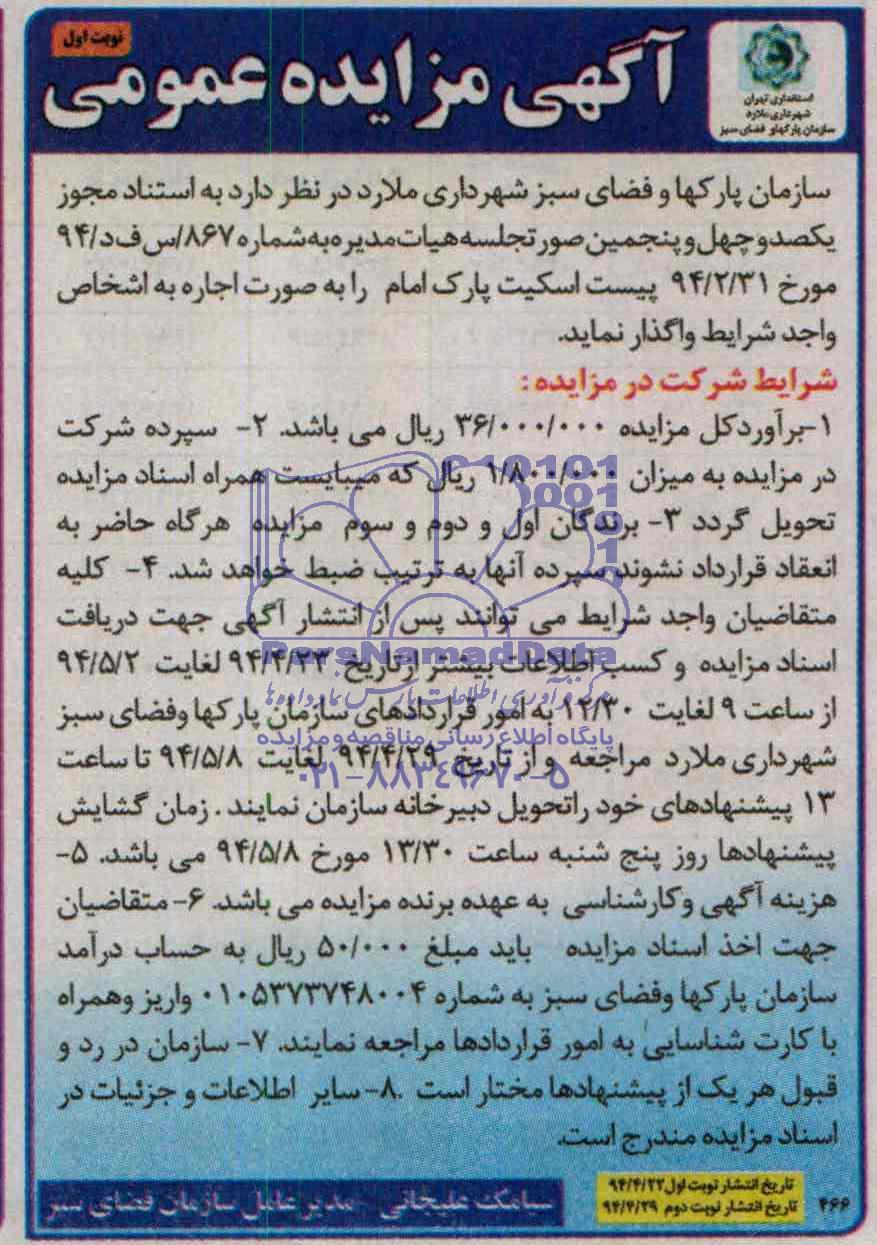 نوبت اول
آگهی مزایده عمومی
استانداری تهران
شهرداری ملارد
سازمان پارکها و فضای سبز
سازمان پارکها و فضای سبز شهرداری ملارد در نظر دارد به استناد مجوز
یکصدو چهل و پنجمین صورتجلسه هیات مدیره به شماره ۸۶۷/س ف د/۹۴
مورخ ۹۴/۲/۳۱ پیست اسکیت پارک امام را به صورت اجاره به اشخاص
واجد شرایط واگذار نماید.
شرایط شرکت در مزایده :
۱-برآوردکل مزایده ۳۶/۰۰۰/۰۰۰ ریال می باشد. ۲- سپرده شرکت
در مزایده به میزان ۱/۸۰۰/۰۰۰ ریال که میبایست همراه اسناد مزایده
تحویل گردد ۳- برندگان اول و دوم و سوم مزایده هرگاه حاضر به
انعقاد قرارداد نشوند سپرده آنها به ترتیب ضبط خواهد شد. ۴- کلیه
متقاضیان واجد شرایط می توانند پس از انتشار آگهی جهت دریافت
اسناد مزایده و کسب اطلاعات بیشتر ازتاریخ ۹۴/۴/۲۳ لغایت ۹۴/۵/۲
از ساعت ۹ لغایت ۱۲/۳۰ به امور قراردادهای سازمان پارکها وفضای سبز
شهرداری ملارد مراجعه و از تاریخ ۹۴/۴/۲۹ لغایت ۹۴/۵/۸ تا ساعت
۱۳ پیشنهادهای خود راتحویل دبیرخانه سازمان نمایند . زمان گشایش
پیشنهادها روز پنج شنبه ساعت ۱۳/۳۰ مورخ ۹۴/۵/۸ می باشد. ۵-
هزینه آگهی وکارشناسی به عهده برنده مزایده می باشد. ۶- متقاضیان
جهت اخذ اسناد مزایده باید مبلغ ۵۰/۰۰۰ ریال به حساب درآمد
سازمان پارکها وفضای سبز به شماره ۰۱۰۵۳۷۳۷۴۸۰۰۴ واریز وهمراه
با کارت شناسایی به امور قراردادها مراجعه نمایند. ۷- سازمان در رد و
قبول هر یک از پیشنهادها مختار است .۸- سایر اطلاعات و جزئیات در
اسناد مزایده مندرج است.
ParsNamadData
پایگاه اطلاع رسانی مناقصه و مزایده
۰۲۱-۸۸۳۴۹۶۷۰-۵
۴۶۶
تاریخ انتشار نوبت اول ۹۴/۴/۲۲
تاریخ انتشار نوبت دوم ۹۴/۴/۲۹
سیامک علیجانی - مدیر عامل سازمان فضای سبز